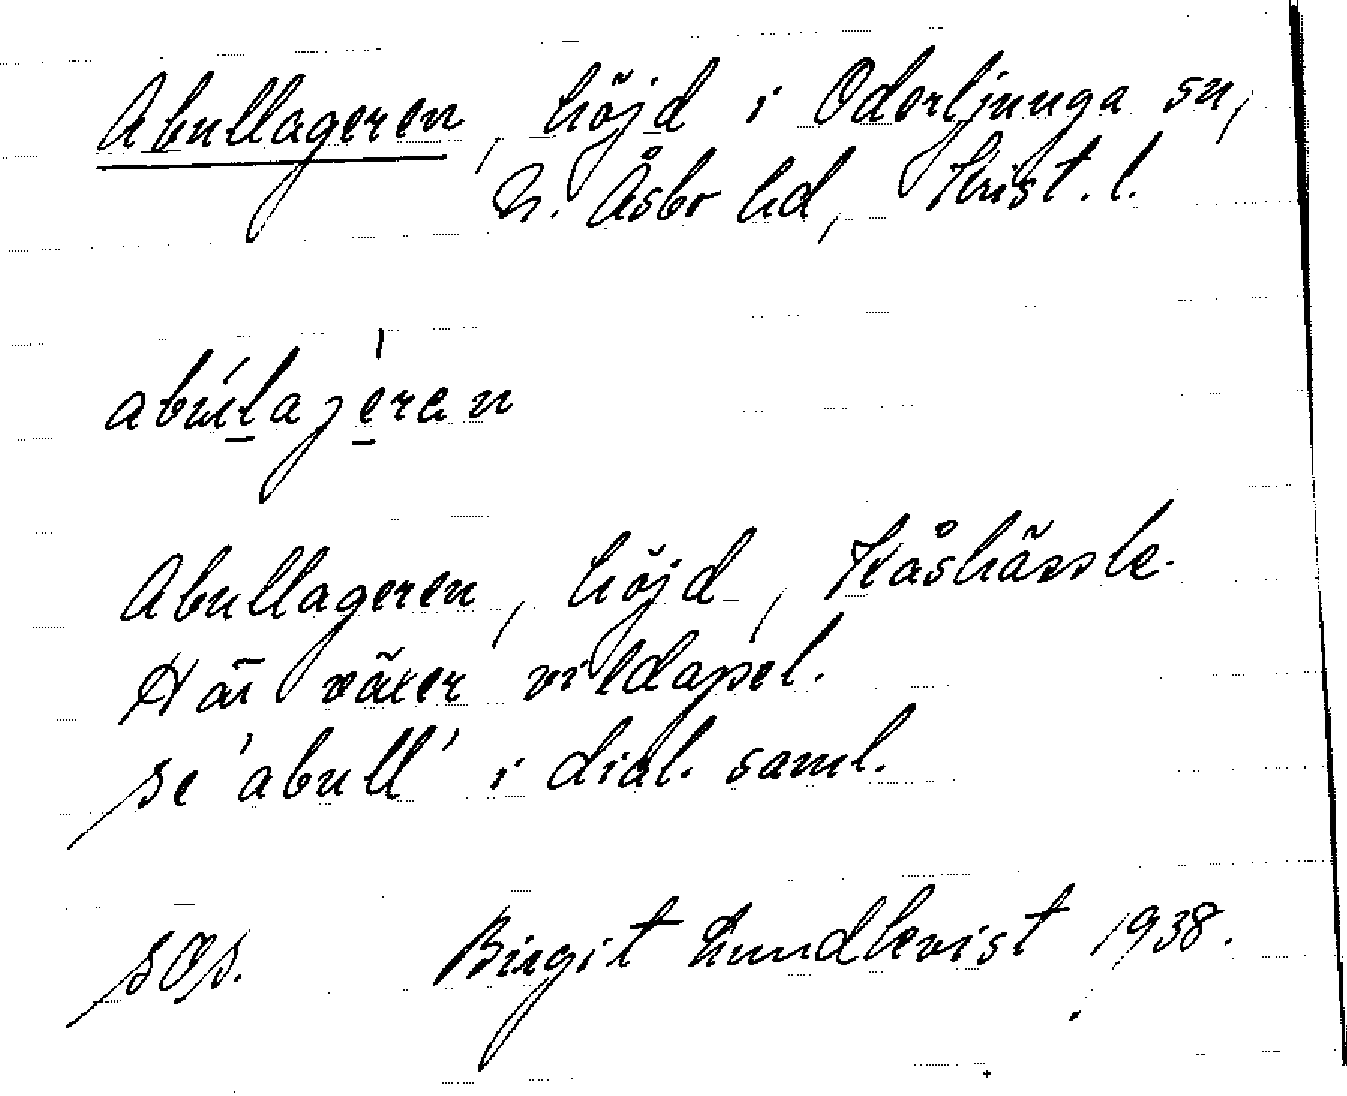 Abullageren, höjd i Oderljunga sn,
N. Åsbo hd, Krist. l.
abulajeran
Abullageren, höjd, Kåshässle.
Här växer vildapel.
se 'abull' i dial. saml.
Birgit Lundkvist 1938.